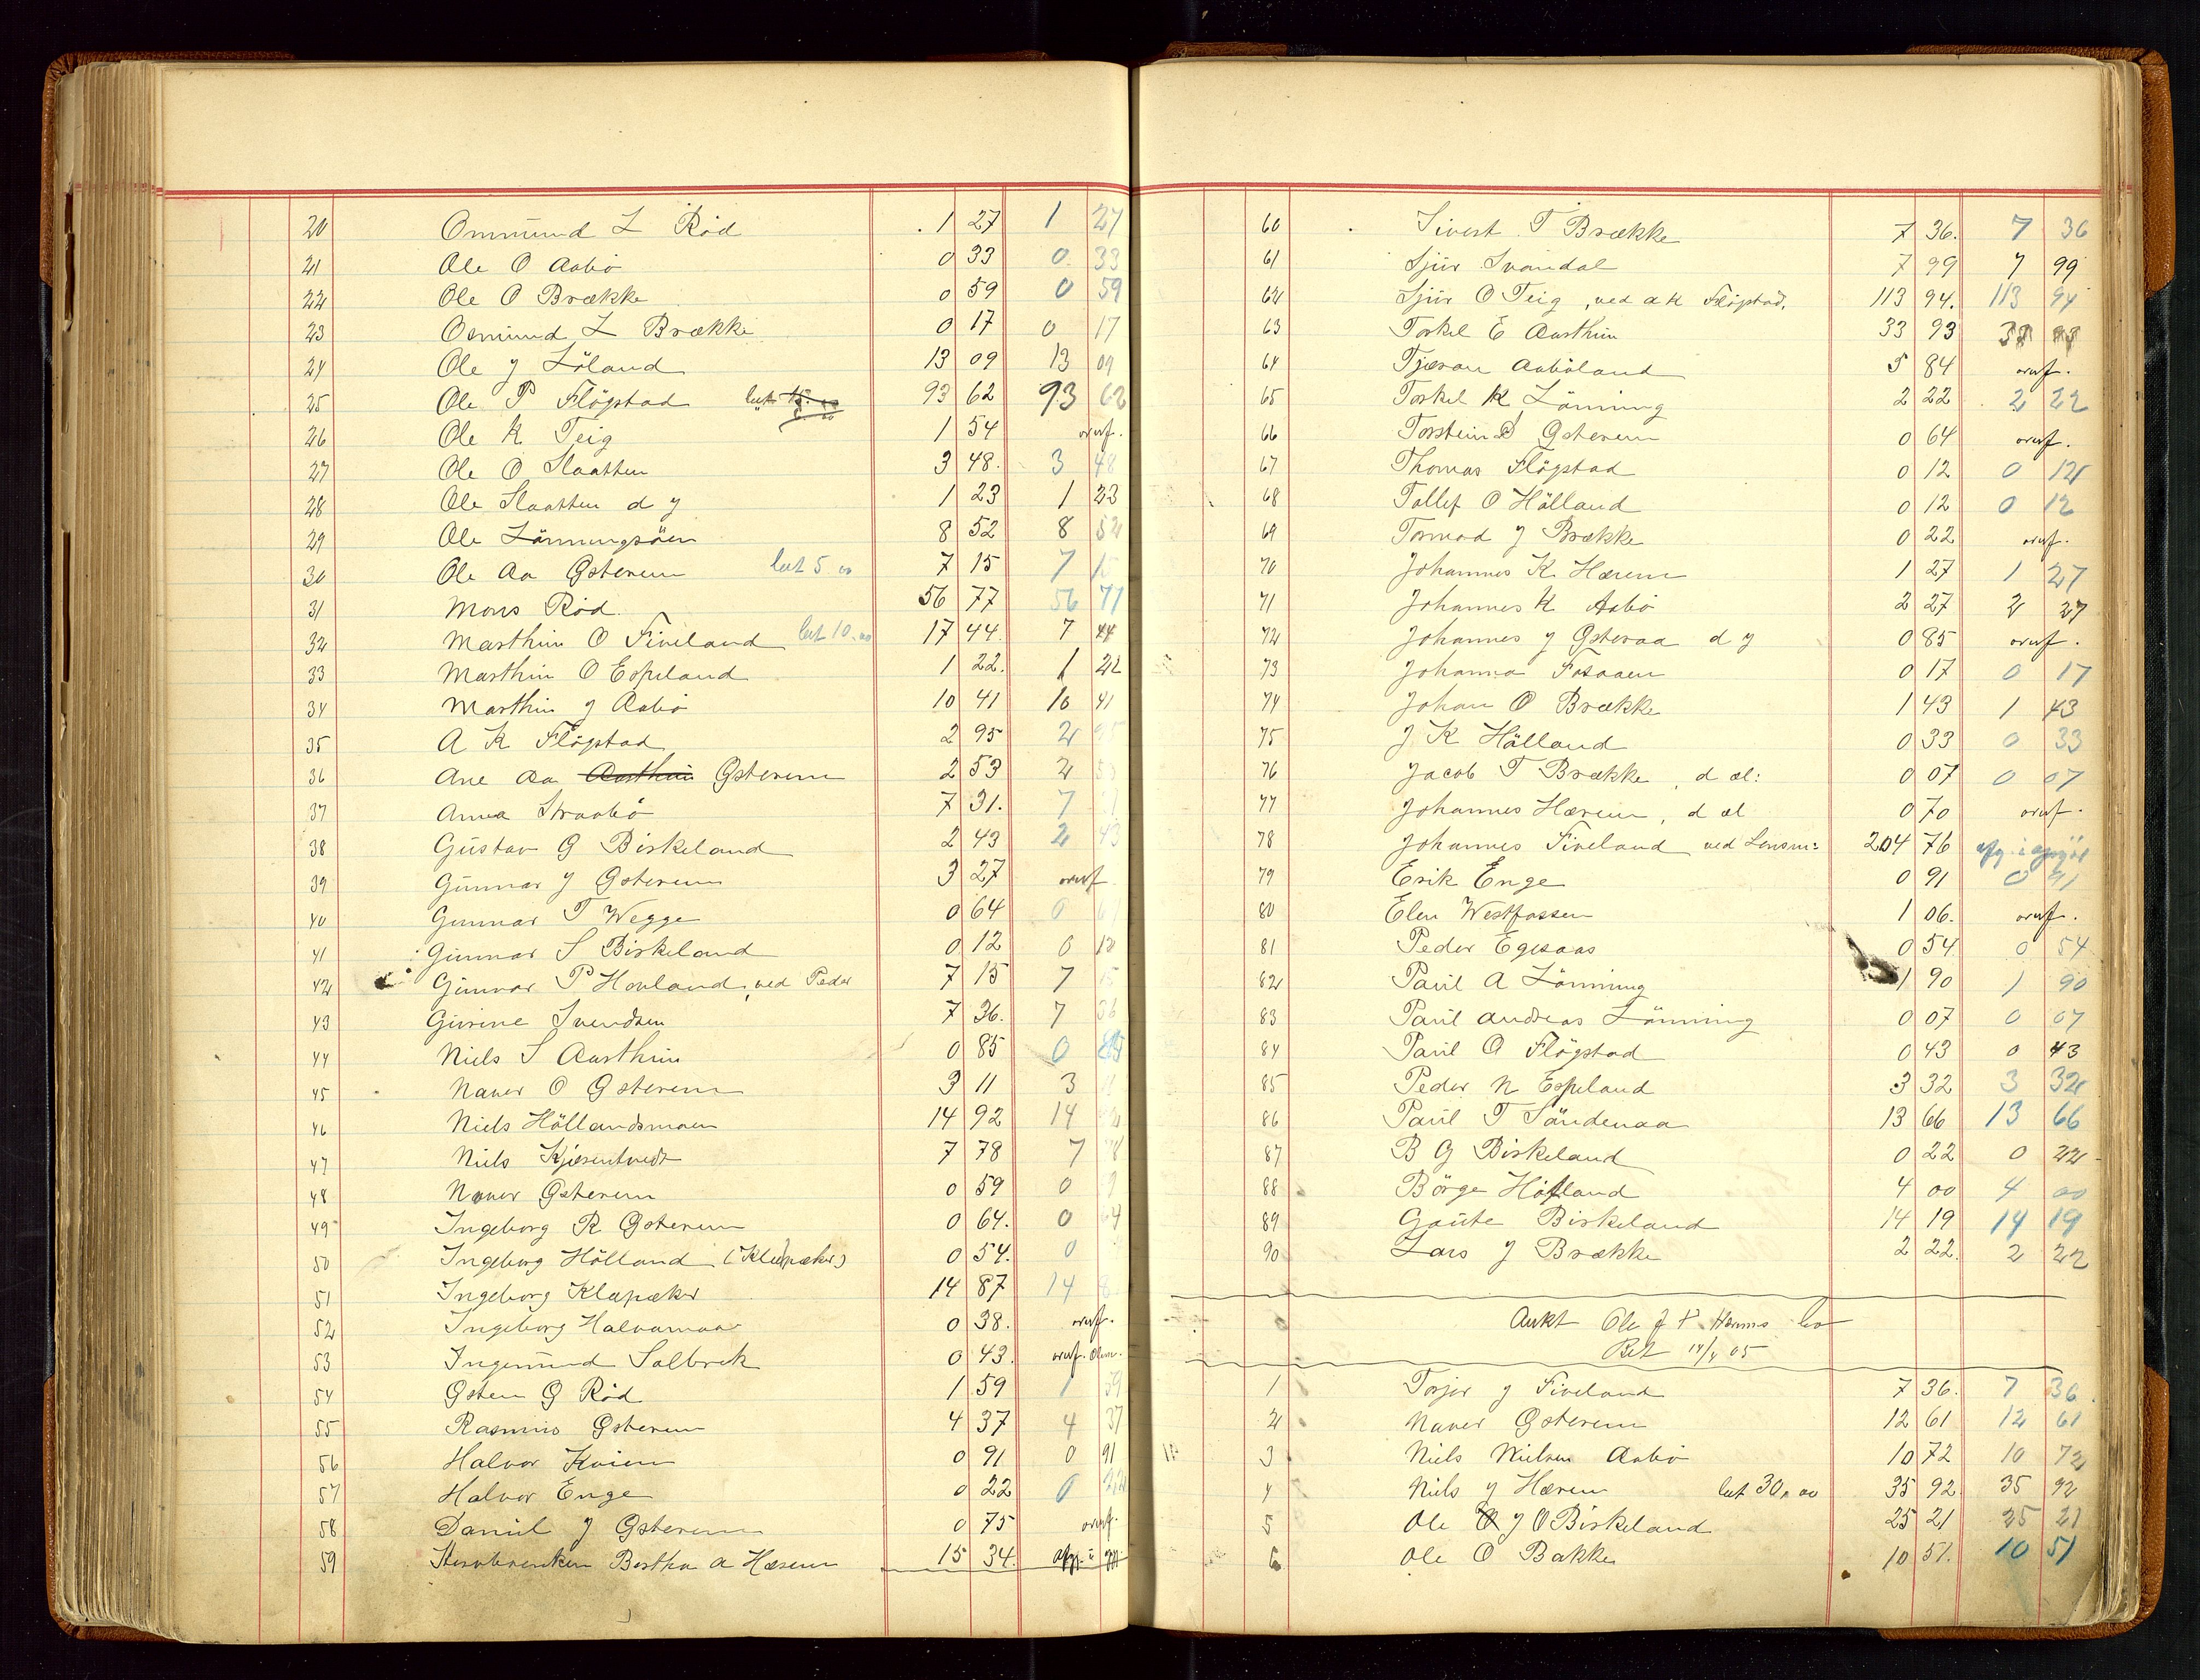 20 Ommund L Röd 1 27 1 27
21 Ole O Aabö 0 33 0 33
22 Ole O Brække 0 59 0 59
23 Osmund L Brække 0 17 0 17
24 Ole J Löland 13 09 13 09
25 Ole P Flögstad 93 62 93 62
26 Ole K Teig 1 54 overf.
27 Ole O Slaatten 3 48. 3 48
28 Ole Slaatten d y 1 23 1 23
29 Ole Lönningsöen 8 52 8 52
30 Ole Aa Østerem bet 5.00 7 15 7 15
31 Mons Röd. 56 77 56 77
32 Marthin O Fiveland bet 10.00 17 44. 7 44
33 Marthin O Espeland 1 22. 1 22
34 Marthin J Aabö 10 41 10 41
35 A K Flögstad 2 95 2 95
36 Ane Aa Aarthun Østerem 2 53 2 53
37 Anna Straabö 7 31. 7 31
38 Gustav G Birkeland 2 43 2 43
39 Gunnar J Østerem 3 27 overf
40 Gunnar T Wegge 0 64 0 64
41 Gunnar S Birkeland 0 12 0 12
42 Gunvor P Hovland, ved Peder 7 15 7 15
43 Gurine Svendsen 7 36. 7 36
44 Niels S Aarthun 0 85 0 85
45 Naver O Østerem 3 11 3 11
46 Niels Höllandsmoen 14 92 14 92
47 Niels Kjerentvedt 7 78 7 78
48 Naver Østerem 0 59 0 59
49 Ingeborg R Østerem 0 64. 0 64
50 Ingeborg Hölland (Kleppæker) 0 54. 0
51 Ingeborg Klepæker 14 87 14 8
52 Ingeborg Halvamoa 0 38. overf.
53 Ingemund Solbrek 0 43. overf.
54 Østen G Röd 1 59 1 59
55 Rasmus Østerem 4 37 4 37
56 Halvor Kvien 0 91 0 91
57 Halvor Enge 0 22 0 22
58 Daniel J Østerem 0 75 overf.
59 Bertha A Hærem 15 34.
60 Sivert T Brække 7 36. 7 36
61 Sjur Svandal 7 99 7 99
62 Sjur O Teig, ved A K Flögstad. 113 94. 113 94
63 Torkel E Aarthun 33 93 33 93
64 Tjeran Aaböland 5 84 overf.
65 Torkel K Lönning 2 22 2 22
66 Torstein D Østerem 0 64 overf.
67 Thomas Flögstad 0 12 0 12
68 Tollef O Hölland 0 12 0 12
69 Tormod J Brække 0 22 overf.
70 Johannes K Hærem 1 27 1 27
71 Johannes K Aabö 2 27 2 27
72 Johannes J Østeraa d y 0 85 overf.
73 Johanna Fosaaen 0 17 0 17
74 Johan O Brække 1 43 1 43
75 J K Hölland 0 33 0 33
76 Jacob T Brække, d æl: 0 07 0 07
77 Johannes Hærem, d æl 0 70 overf.
78 Johannes Fiveland ved Lensm: 204 76
79 Erik Enge 0 91 0 91
80 Elen Westfossen 1 06. overf.
81 Peder Egesaas 0 54 0 54
82 Paul A Lönning 1 90 1 90
83 Paul Andreas Lönning 0 07 0 07
84 Paul O Flögstad 0 43 0 43
85 Peder N Espeland 3 32 3 32
86 Paul T Söndenaa 13 66 13 66
87 B G Birkeland 0 22 0 22
88 Börge Höfland 4 00 4 00
89 Gaute Birkeland 14 19 14 19
90 Lars J Brække 2 22. 2 22
Aukt Ole J bo
Bet 14/4 05
1 Torjer J Fiveland 7 36. 7 36.
2 Naver Østerem 12 61 12 61
3 Niels Nielsen Aabö 10 72 10 72
4 Niels J Hærem bet 30,00 35 92. 35 92
5 Ole J O Birkeland 25 21 25 21
6 Ole O Bakke 10 51. 10 51